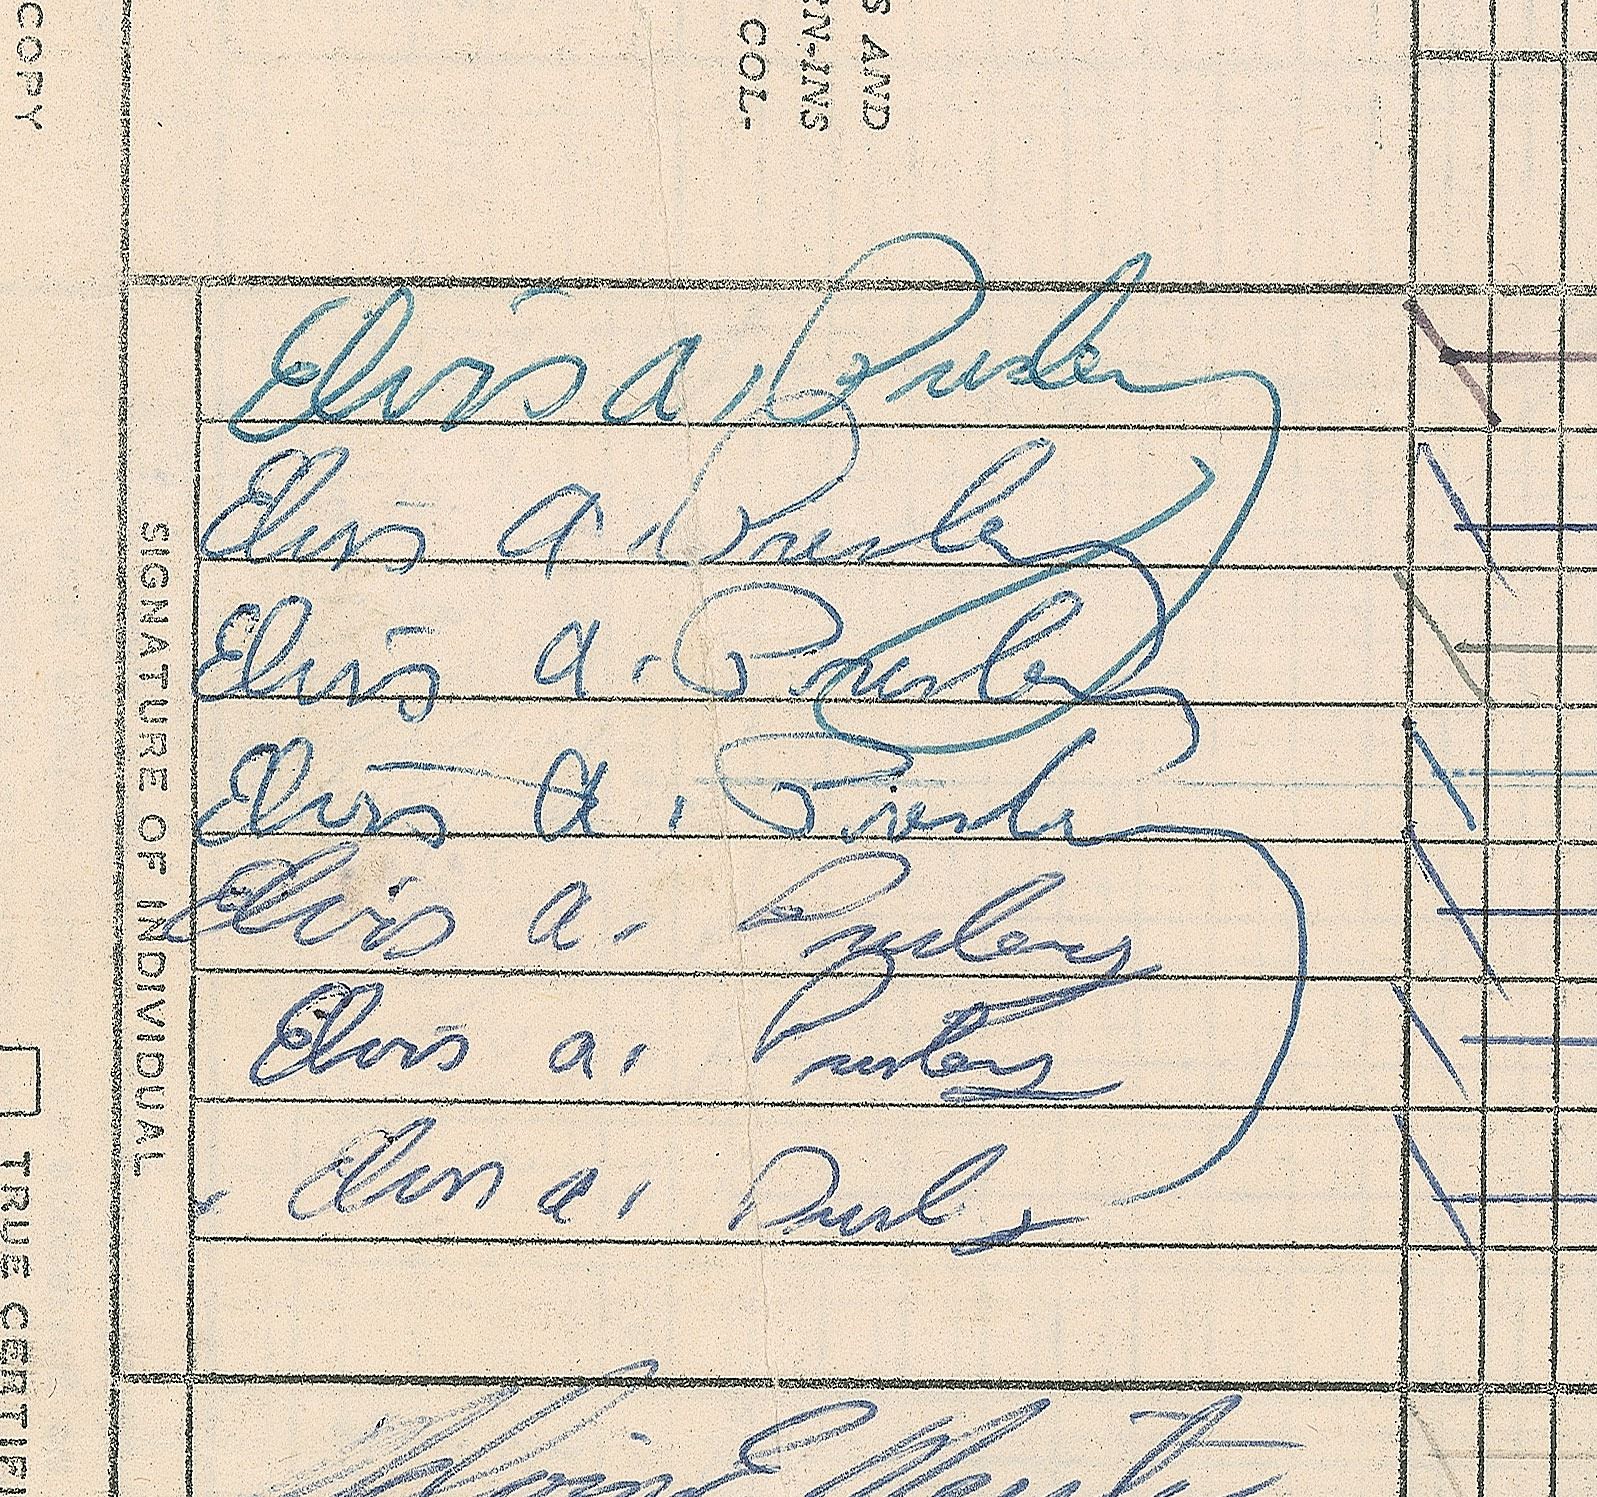 COPY
S AND
RN-INS
COL-
SIGNATURE OF INDIVIDUAL
Elvis A. Presley
Elvis A. Presley
Elvis A. Presley
Elvis A. Presley
Elvis A. Presley
Elvis A. Presley
Elvis A. Presley
TRUE CERTIFI